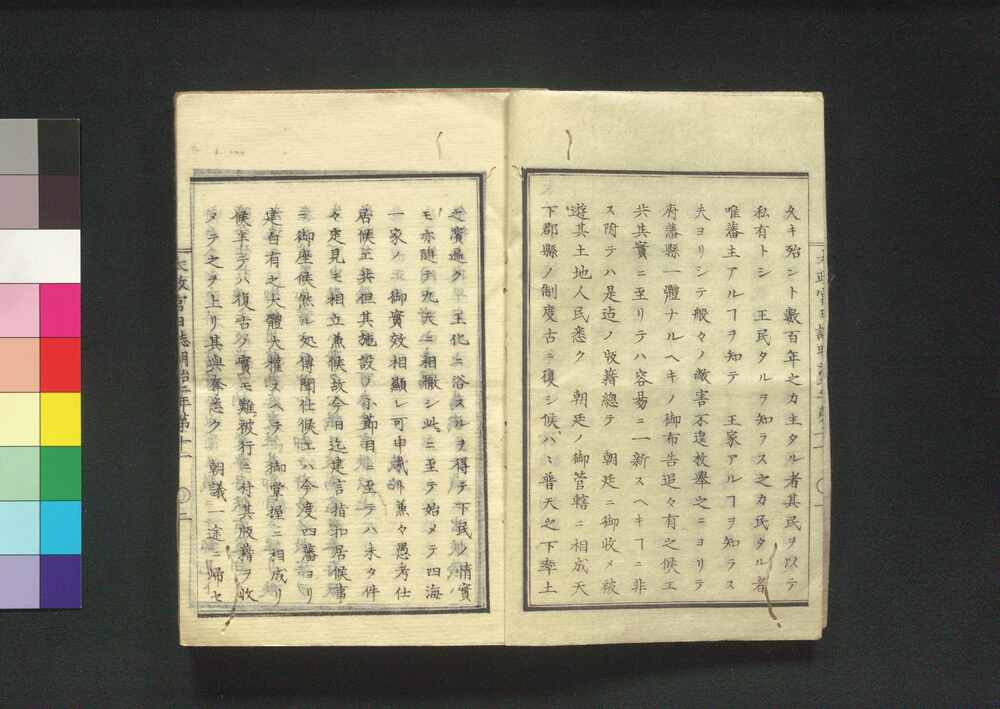 久キ殆ント數百年之カ主タル者其民ヲ以テ
私有トシ 王民タルヲ知ラス之カ民タル者
唯藩主アルヿヲ知テ 王家アルヿヲ知ラス
夫ヨリシテ般々ノ敝害不遑枚舉之ニヨリテ
府藩縣一體ナルヘキノ御布告追々有之候エ
共其實ニ至リテハ容易ニ一新スヘキヿニ非
ス因テハ是迠ノ版籍總テ 朝廷ニ御收メ被
遊其土地人民悉ク 朝廷ノ御管轄ニ相成天
下郡縣ノ制度古ニ復シ候ハヽ普天之下率土
之濱遍ク 王化ニ浴スルヲ得テ下民ノ情實
モ亦隨テ九天ニ相徹シ此ニ至テ始メテ四海
一家ノ 御實效相顯レ可申哉ト兼々愚考仕
居候エ共但其施設ノ小節目ニ至テハ未タ件
々定見モ相立兼候故今日迠建言指扣居候事
ニ御座候然ル処傳聞仕候エハ今度四藩ヨリ
建白有之大體大權スヘテ 御掌握ニ相成リ
候半テハ復古ノ實モ難被行ニ付其版籍ヲ收
タテ之ヲ上リ其與奪悉ク 朝議一途ニ歸セ
太政官日誌明治二年第十二